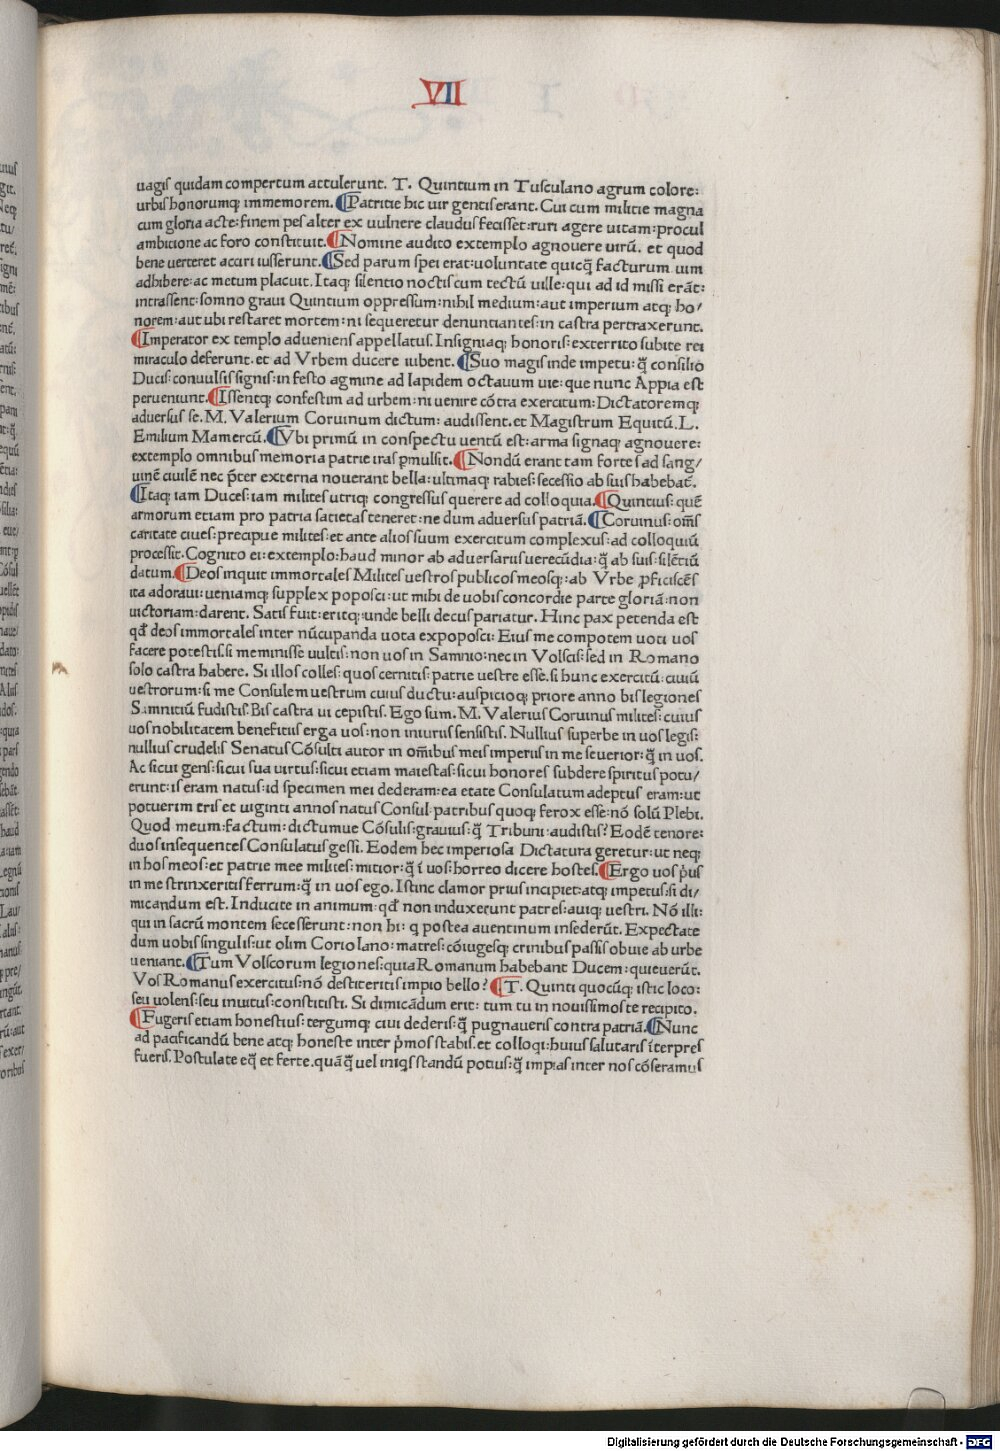 VII
uagis quidam compertum attulerunt. T. Quintium in Tusculano agrum colore:
urbis honorumq; immemorem. Patritie hic uir gentis erant. Cui cum militie magna
cum gloria acte: finem pes alter ex uulnere claudus fecisset: ruri agere uitam: procul
ambitione ac foro constituit. Nomine audito extemplo agnouere uirū. et quod
bene uerteret acciri iusserunt. Sed parum spei erat: uoluntate quicq̄ facturum. uim
adhibere: ac metum placuit. Itaq; silentio noctis cum tectū uille: qui ad id missi erāt:
intrassent: somno graui Quintium oppressum: nihil medium: aut imperium atq; ho/
norem: aut ubi restaret mortem: ni sequeretur denuntiantes: in castra pertraxerunt.
Imperator ex templo adueniens appellatus. Insigniaq; honoris: exterrito subite rei
miraculo deferunt. et ad Vrbem ducere iubent. Suo magis inde impetu: q̄ consilio
Ducis: conuulsis signis: infesto agmine ad lapidem octauum uie: que nunc Appia est
perueniunt. Issentq; confestim ad urbem: ni uenire cōtra exercitum: Dictatoremq;
aduersus se. M. Valerium Coruinum dictum: audissent. et Magistrum Equitū. L.
Emilium Mamercū. Vbi primū in conspectu uentū est: arma signaq; agnouere:
extemplo omnibus memoria patrie iras p̱mulsit. Nondū erant tam fortes ad sang/
uinē ciuilē nec p̄ter externa nouerant bella: ultimaq; rabies: secessio ab suis habebat̄.
Itaq; iam Duces: iam milites utriq; congressus querere ad colloquia. Quintius: quē
armorum etiam pro patria satietas teneret: ne dum aduersus patriā. Coruinus: om̄s
caritate ciues: precipue milites: et ante alios suum exercitum complexus: ad colloquiū
processit. Cognito ei: extemplo: haud minor ab aduersariis uerecūdia: q̄ ab suis: silētiū
datum. Deos inquit immortales Milites uestros publicos meosq;: ab Vrbe p̱ficiscēs
ita adoraui: ueniamq; supplex poposci: ut mihi de uobis concordie parte gloriā: non
uictoriam: darent. Satis fuit: eritq; unde belli decus pariatur. Hinc pax petenda est
qđ deos immortales inter nūcupanda uota expoposci: Eius me compotem uoti uos
facere potestis. si meminisse uultis: non uos in Samnio: nec in Volscis: sed in Romano
solo castra habere. Si illos colles: quos cernitis: patrie uestre esse. si hunc exercitū: ciuiū
uestrorum: si me Consulem uestrum cuius ductu: auspicioq; priore anno bis legiones
Samnitiū fudistis. Bis castra ui cepistis. Ego sum. M. Valerius Coruinus milites: cuius
uos nobilitatem benefitiis erga uos: non iniuriis sensistis. Nullius superbe in uos legis:
nullius crudelis Senatus Cōsulti autor in om̄ibus meis imperiis in me seuerior: q̄ in uos.
Ac sicui gens: sicui sua uirtus: sicui etiam maiestas: sicui honores subdere spiritus potu/
erunt: is eram natus: id specimen mei dederam: ea etate Consulatum adeptus eram: ut
potuerim tris et uiginti annos natus Consul patribus quoq; ferox esse: nō solū Plebi.
Quod meum: factum: dictumue Cōsulis: grauius: q̄ Tribuni audistis? Eodē tenore:
duos insequentes Consulatus gessi. Eodem hec imperiosa Dictatura geretur: ut neq;
in hos meos: et patrie mee milites: mitior: q̄ ī uos: horreo dicere hostes. Ergo uos p̄us
in me strinxeritis ferrum: q̄ in uos ego. Istinc clamor prius incipiet: atq; impetus: si di/
micandum est. Inducite in animum: qđ non induxerunt patres: auiq; uestri. Nō illi:
qui in sacrū montem secesserunt: non hi: q̱ postea auentinum insederūt. Expectate
dum uobis singulis: ut olim Coriolano: matres: cōiugesq; crinibus passis obuie ab urbe
ueniant. Tum Volscorum legiones: quia Romanum habebant Ducem: quieuerūt.
Vos Romanus exercitus: nō destiteritis impio bello? T. Quinti quocūq; istic loco:
seu uolens: seu inuitus: constitisti. Si dimicādum erit: tum tu in nouissimos te recipito.
Fugeris etiam honestius: tergumq; ciui dederis: q̄ pugnaueris contra patriā. Nunc
ad pacificandū bene atq; honeste inter p̄mos stabis. et colloqi: huius salutaris īterpres
fueris. Postulate eq̄ et ferte. quāq̄ uel iniqs standū potius: q̄ impias inter nos cōseramus
Digitalisierung gefördert durch die Deutsche Forschungsgemeinschaft - DFG